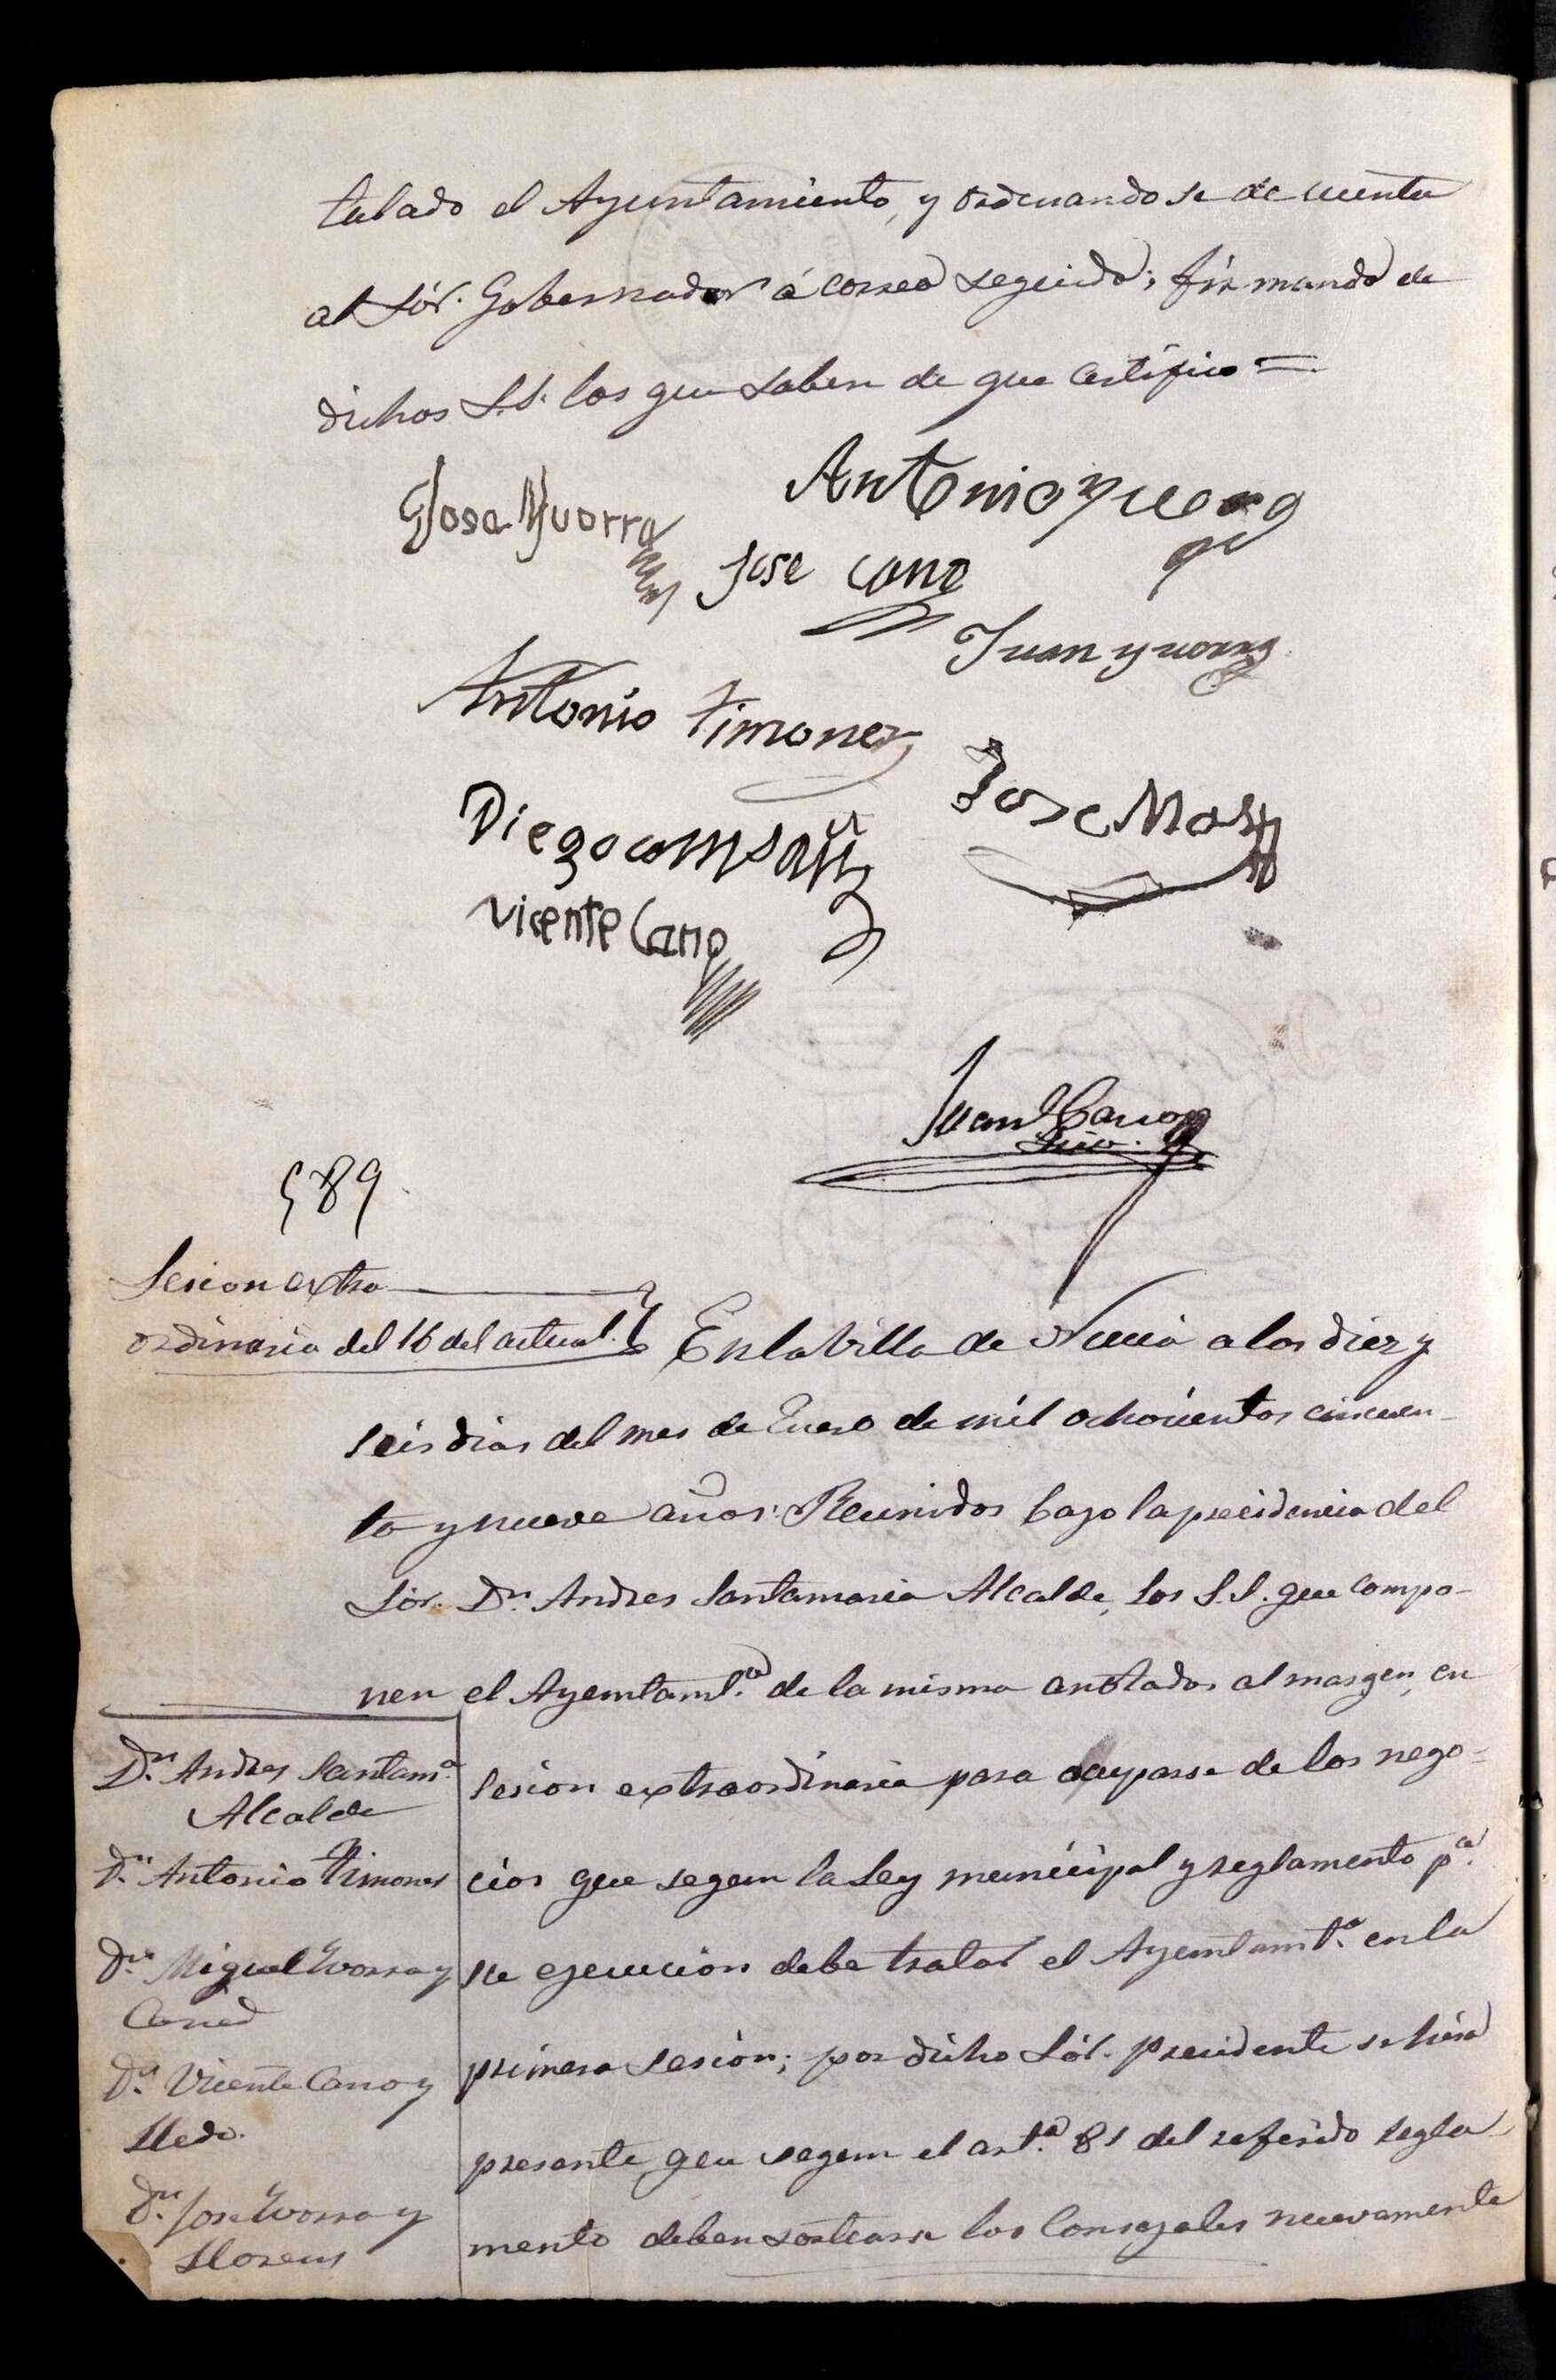 talado el Ayuntamiento, y ordenando se de cuenta
al Sór. Gobernador á correo seguido; firmando de
dichos S.S. los que saben de que certifico =
Jose Yvorra
Antonio yvorra
Jose cano
Juan yvorra
Antonio timoner
Jose Mas
Diego
Vicente Cano
Juan Cano
Srio.
589
Sesion extra
ordinaria del 16 del actual.
En la Villa de Nucia a los diez y
seis dias del mes de Enero de mil ochocientos cincuen-
ta y nueve años: Reunidos bajo la precidencia del
Sór. Dn. Andres Santamaria Alcalde, los S.S. que compo-
nen el Ayuntamt.º de la misma anotados al margen, en
sesion extraordinaria para ocuparse de los nego-
cios que segun la Ley municipal y reglamento pª.
su ejecucion debe tratar el Ayuntamtº. en la
primera sesion; por dicho Sór. precidente se hiso
presente que segun el artº. 81 del referido regla-
mento deben sortearse los Consejales nuevamente
Dn. Andres Santamª.
Alcalde
Dn. Antonio Timoner
Dn. Miguel Yvorra y
Cano
Dn. Vicente Cano y
Lledo.
Dn. Jose Yvorra y
Llorens